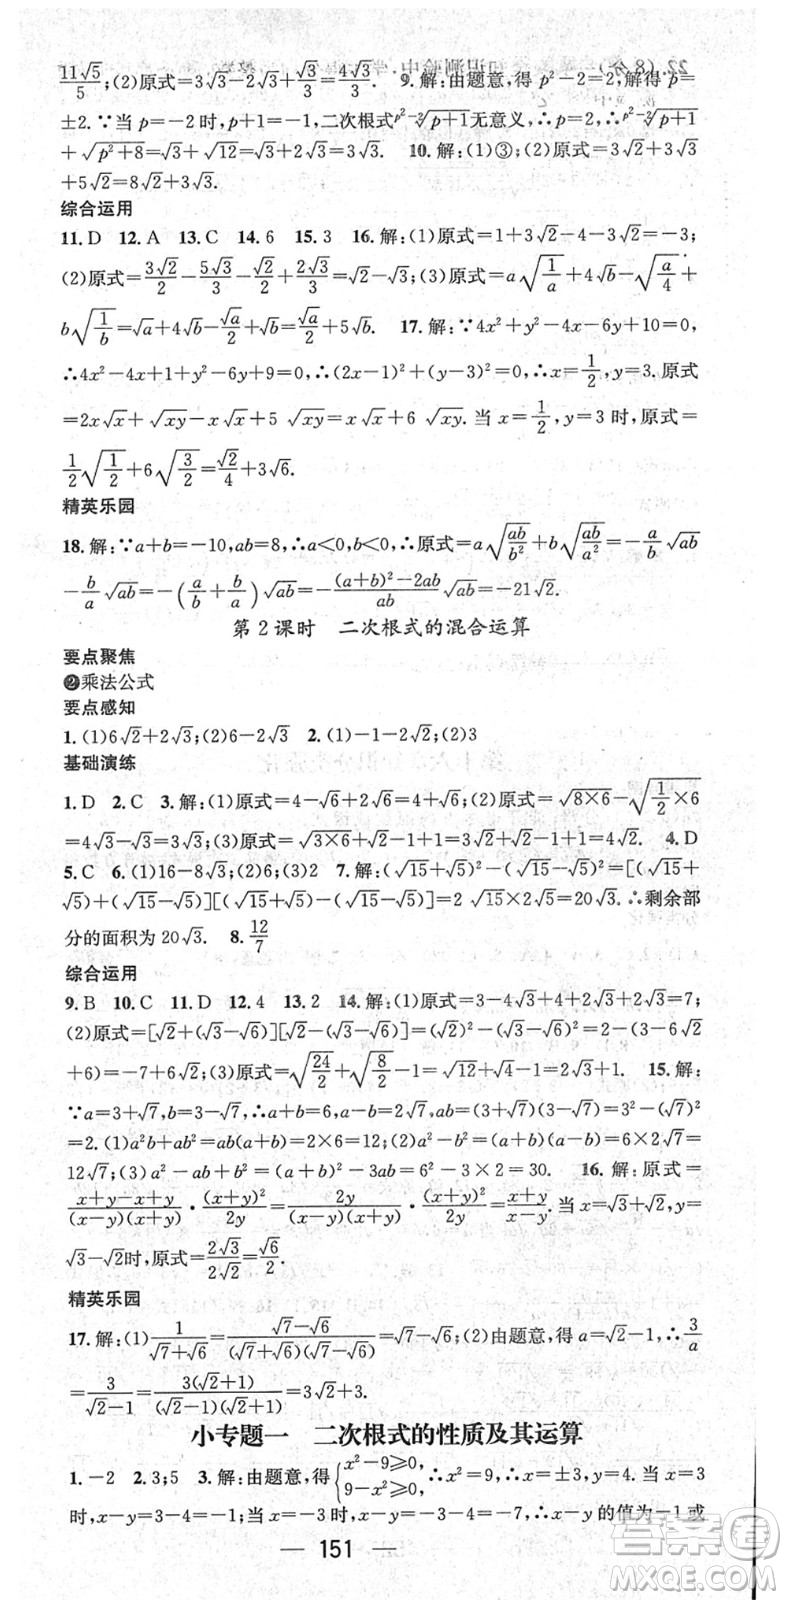 11√5/5;(2)原式=3√3-2√3+√3/3=4√3/3. 9.解:由题意,得 p²-2=2,解得 p=
±2.∵当 p=-2 时,p+1<0,二次根式 ᵖ²⁻²√(p+1)无意义,∴p=2,∴ᵖ²⁻²√(p+1)
+√(p²+8)=√3+√12=√3+2√3=3√3. 10.解:(1)③;(2)原式=3√2+3√3
+5√2=8√2+3√3.
综合运用
11.D 12.A 13.C 14.6 15.3 16.解:(1)原式=1+3√2-4-3√2=-3;
(2)原式=3√2/2-5√3/3-√2/2+2√3/3=√2-√3;(3)原式=a√(1/a)+4√b-√(a/4)+
b√(1/b)=√a+4√b-√a/2+√b=√a/2+5√b. 17.解:∵4x²+y²-4x-6y+10=0,
∴4x²-4x+1+y²-6y+9=0,∴(2x-1)²+(y-3)²=0,∴x=1/2,y=3.原式
=2x√x+√(xy)-x√x+5√(xy)=x√x+6√(xy).当 x=1/2,y=3 时,原式=
1/2√(1/2)+6√(3/2)=√2/4+3√6.
精英乐园
18.解:∵a+b=-10,ab=8,∴a<0,b<0,∴原式=a√(ab/b²)+b√(ab/a²)=-a/b√(ab)
-b/a√(ab)=-(a/b+b/a)√(ab)=-((a+b)²-2ab)/ab√(ab)=-21√2.
第 2 课时 二次根式的混合运算
要点聚焦
❷乘法公式
要点感知
1.(1)6√2+2√3;(2)6-2√3 2.(1)-1-2√2;(2)3
基础演练
1.D 2.C 3.解:(1)原式=4-√6+2√6=4+√6;(2)原式=√(8×6)-√(1/2×6)
=4√3-√3=3√3;(3)原式=√(3×6)+√2-1+1=3√2+√2=4√2. 4.D
5.C 6.(1)16-8√3;(2)6;(3)2 7.解:(√15+√5)²-(√15-√5)²=[(√15+
√5)+(√15-√5)][(√15+√5)-(√15-√5)]=2√15×2√5=20√3.∴剩余部
分的面积为 20√3. 8.12/7
综合运用
9.B 10.C 11.D 12.4 13.2 14.解:(1)原式=3-4√3+4+2√3+2√3=7;
(2)原式=[√2+(√3-√6)][√2-(√3-√6)]=(√2)²-(√3-√6)²=2-(3-6√2
+6)=-7+6√2;(3)原式=√(24/2)+√(8/2)-1=√12+√4-1=2√3+1. 15.解:
∵a=3+√7,b=3-√7,∴a+b=6,a-b=2√7,ab=(3+√7)(3-√7)=3²-(√7)²
=2.(1)a²b+ab²=ab(a+b)=2×6=12;(2)a²-b²=(a+b)(a-b)=6×2√7=
12√7;(3)a²-ab+b²=(a+b)²-3ab=6²-3×2=30. 16.解:原式=
(x+y-x+y)/((x-y)(x+y))·(x+y)²/2y=2y/((x-y)(x+y))·(x+y)²/2y=(x+y)/(x-y).当 x=√3+√2,y=
√3-√2时,原式=2√3/2√2=√6/2.
精英乐园
17.解:(1)1/(√7+√6)=(√7-√6)/((√7+√6)(√7-√6))=√7-√6;(2)由题意,得 a=√2-1,∴3/a
=3/(√2-1)=3(√2+1)/((√2-1)(√2+1))=3√2+3.
小专题一 二次根式的性质及其运算
1.-2 2.3;5 3.解:由题意,得{x²-9≥0, 9-x²≥0,∴x²=9,∴x=±3,y=4.当 x=3
时,x-y=3-4=-1;当 x=-3 时,x-y=-3-4=-7,∴x-y 的值为-1 或
— 151 —